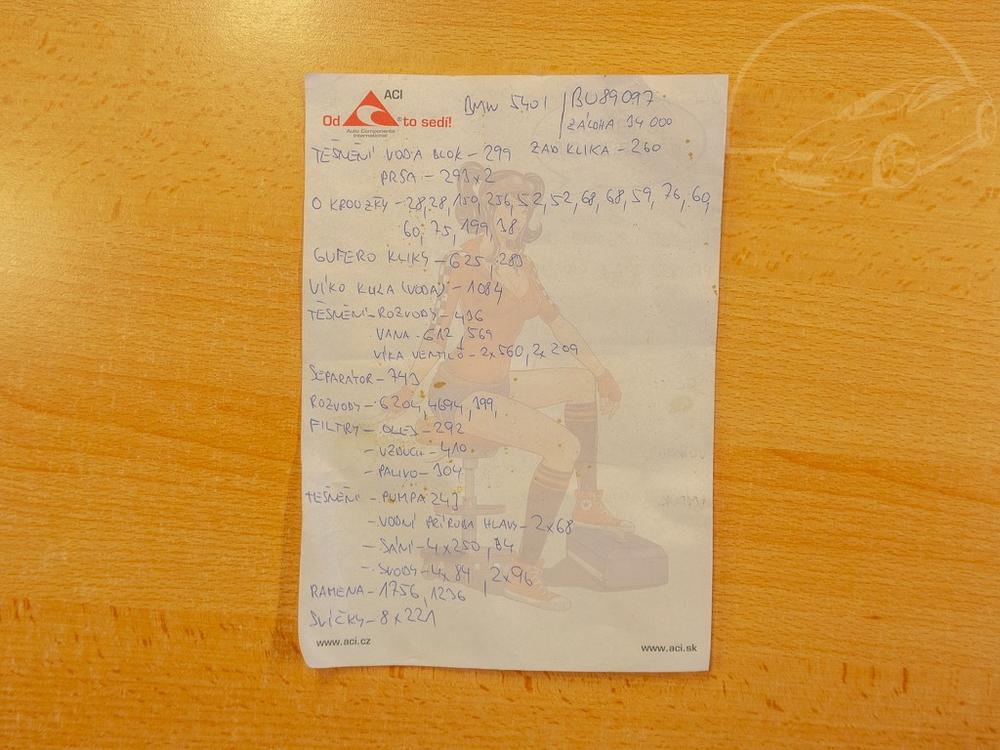 ACI
Od to sedí!
Auto Components
International
BMW 540i
BU89097
ZÁLOHA 34 000
TĚSNĚNÍ VODA BLOK - 299 ZAD KLIKA - 260
PRSA - 293x2
O KROUŽKY - 28, 28, 150, 256, 52, 52, 68, 68, 59, 76, 60,
60, 75, 199, 38
GUFERO KLIKY - 625, 283
VÍKO KULA (VODA) - 1084
TĚSNĚNÍ - ROZVODY - 436
VANA - 612, 569
VÍKA VENTILŮ - 2x560, 2x209
SEPARÁTOR - 743
ROZVODY - 6204, 4694, 399,
FILTRY - OLEJ - 292
- VZDUCH - 410
- PALIVO - 304
TĚSNĚNÍ - PUMPA 243
- VODNÍ PŘÍRUBA HLAVY - 2x68
- SÁNÍ - 4x250, 84
- SVODY - 4x84, 2x96
RAMENA - 1756, 1236
SVÍČKY - 8x221
www.aci.cz
www.aci.sk